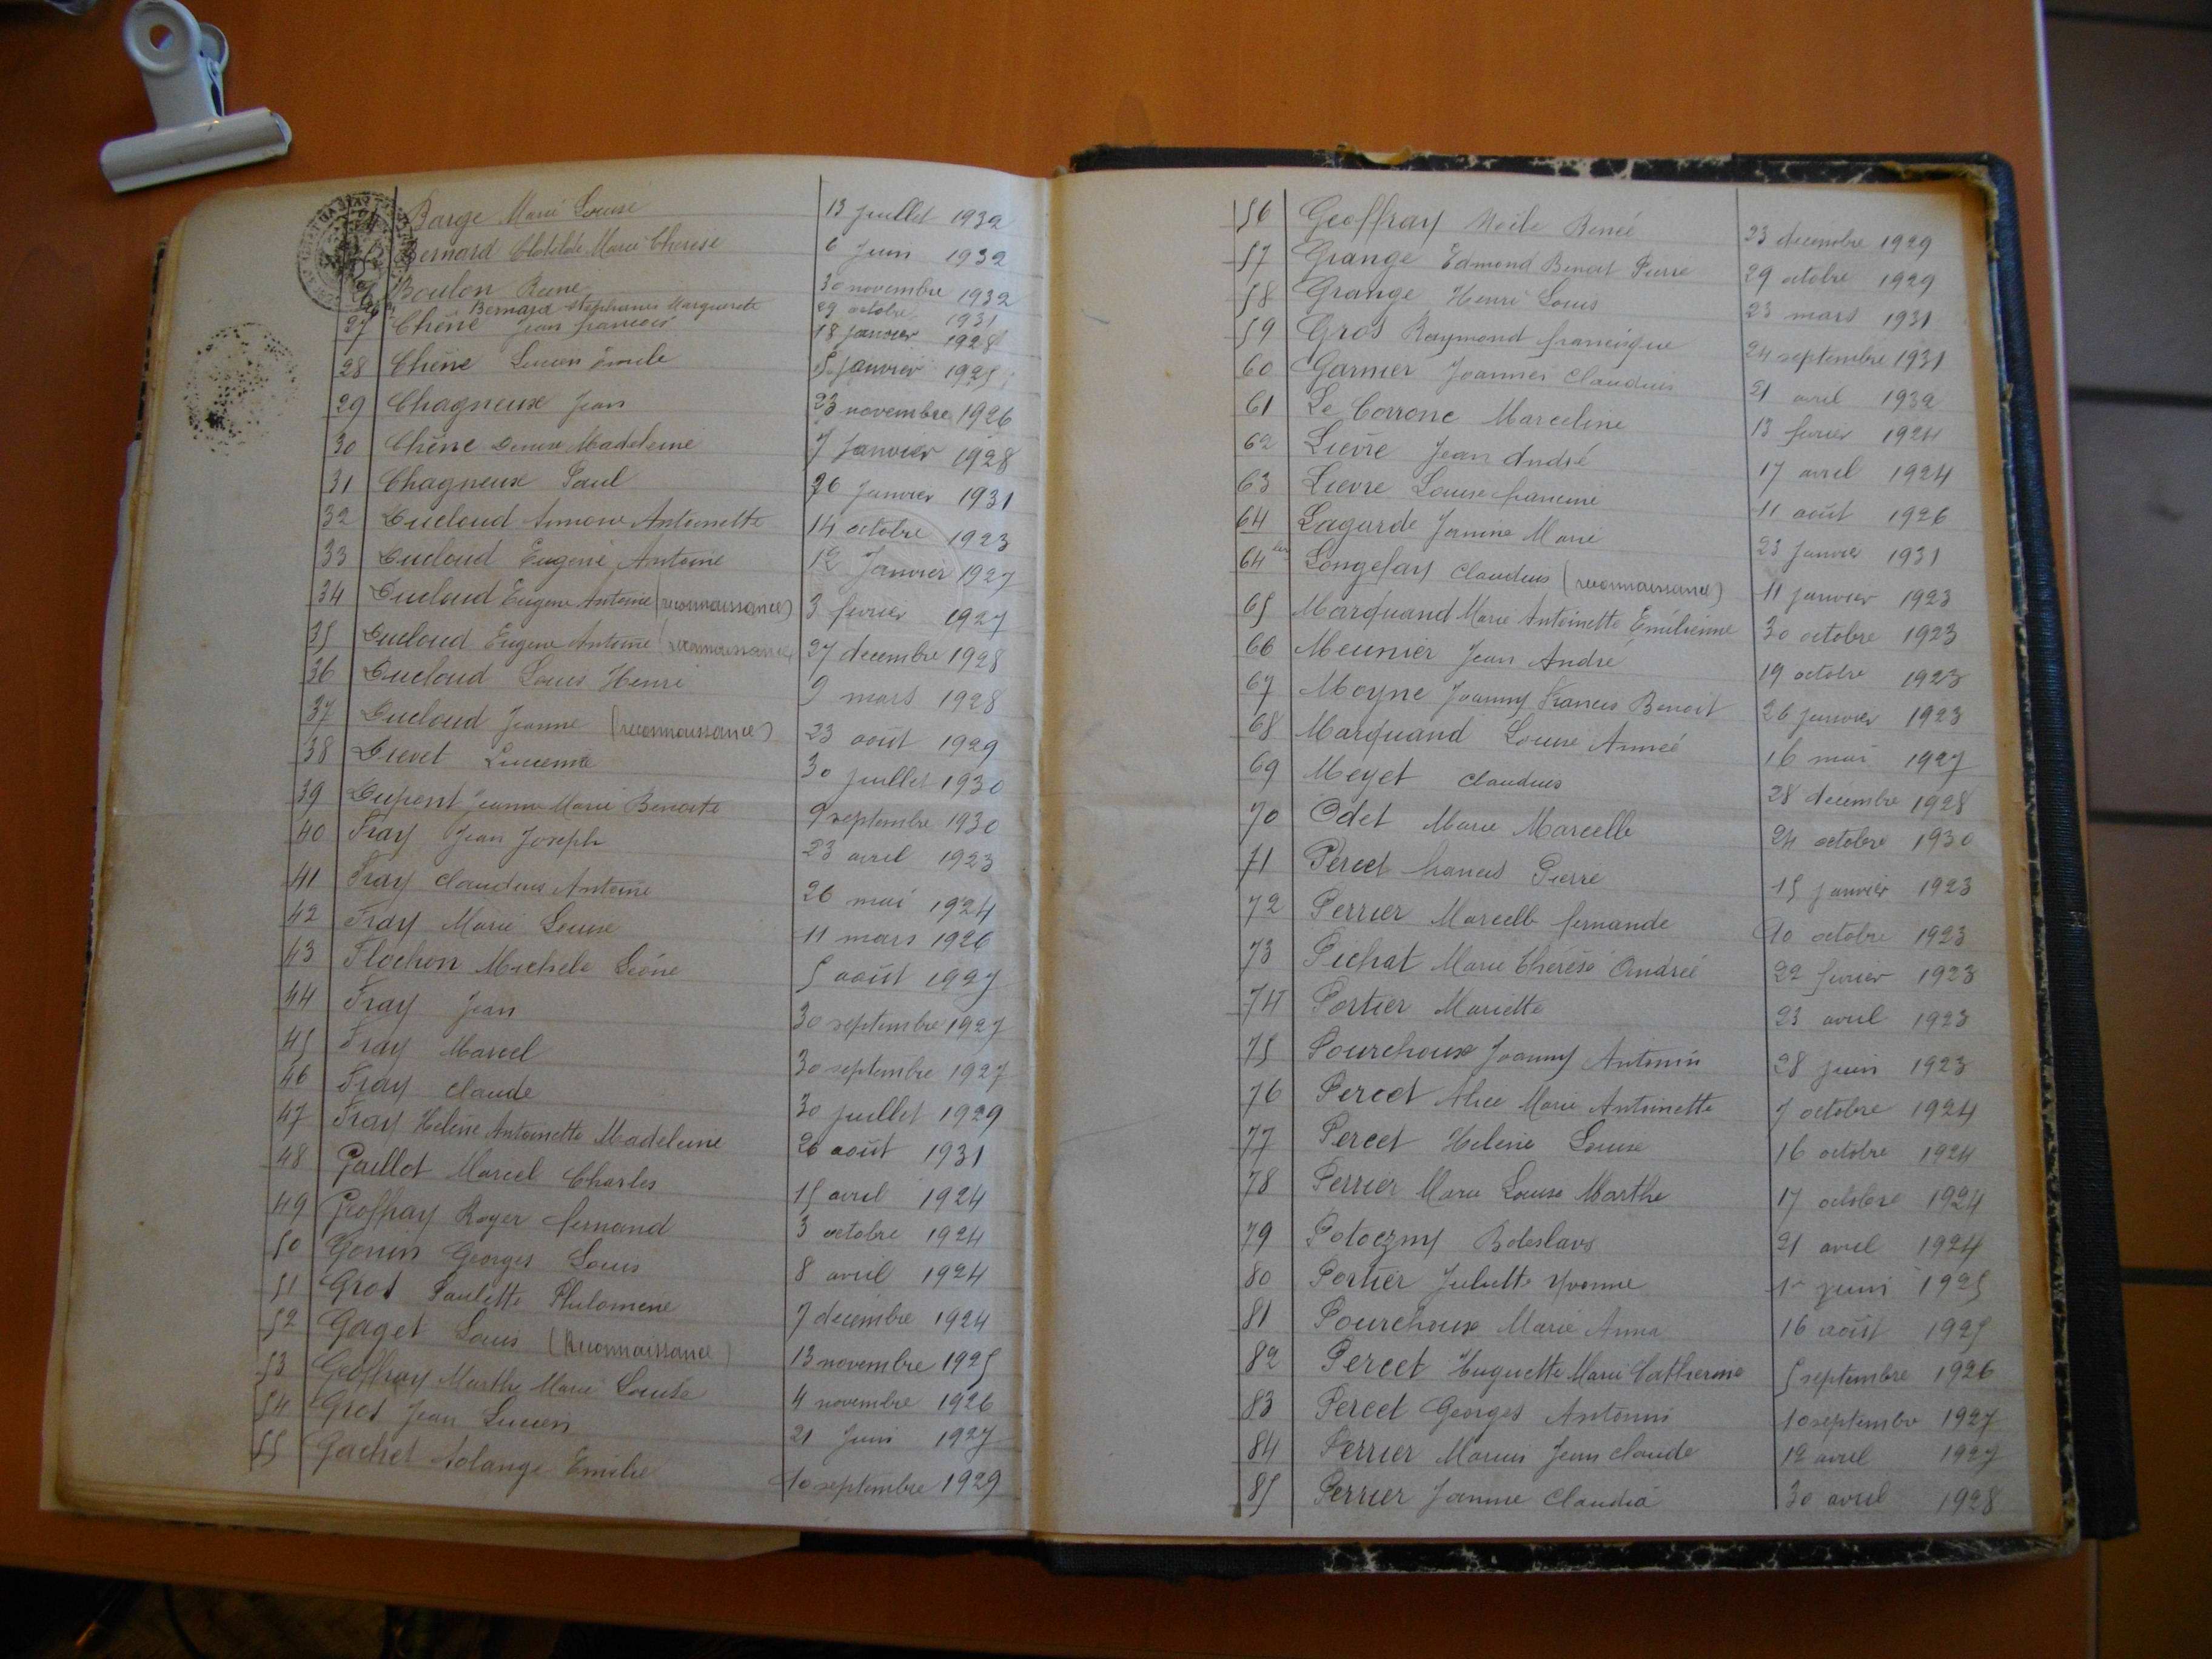 Barge Marie Louise 13 juillet 1932
Bernard Clotilde Marie Therese 6 Juin 1932
Boulon Rene 30 novembre 1932
Bernard Stephanie Marguerite 29 octobre 1931
27 Chêne Jean francois 18 janvier 1928
28 Chêne Lucien émile 5 janvier 1925
29 Chagneux Jean 23 novembre 1926
30 Chêne Denise Madeleine 7 Janvier 1928
31 Chagneux Paul 26 Janvier 1931
32 Ducloud Simone Antoinette 14 octobre 1923
33 Ducloud Eugene Antoine 12 Janvier 1927
34 Ducloud Eugene Antoine (reconnaissance) 3 fevrier 1927
35 Ducloud Eugene Antoine (reconnaissance) 27 decembre 1928
36 Ducloud Louis Henri 9 mars 1928
37 Ducloud Jeanne (reconnaissance) 23 aout 1929
38 Drevet Lucienne 30 juillet 1930
39 Dupont Jeanne Marie Benoite 9 septembre 1930
40 Fray Jean Joseph 23 avril 1923
41 Fray Claudius Antoine 26 mai 1924
42 Fray Marie Louise 11 mars 1926
43 Flochon Michele Léone 5 août 1927
44 Fray Jean 30 septembre 1927
45 Fray Marcel 30 septembre 1927
46 Fray Claude 30 juillet 1929
47 Fray Helène Antoinette Madeleine 26 août 1931
48 Gaillot Marcel Charles 15 avril 1924
49 Geoffray Roger fernand 3 octobre 1924
50 Genin Georges Louis 8 avril 1924
51 Gros Paulette Philomene 7 decembre 1924
52 Gaget Louis (Reconnaissance) 13 novembre 1925
53 Geoffray Marthe Marie Louise 4 novembre 1926
54 Gros Jean Lucien 21 Juin 1927
55 Gachet Solange Emilie 10 septembre 1929
56 Geoffray Noële Renée 23 decembre 1929
57 Grange Edmond Benoit Pierre 29 octobre 1929
58 Grange Henri Louis 23 mars 1931
59 Gros Raymond francisque 24 septembre 1931
60 Garnier Joannes Claudius 21 avril 1932
61 Le Corronc Marceline 13 fevrier 1924
62 Lievre Jean André 17 avril 1924
63 Lievre Louise francine 11 août 1926
64 Lagarde Janine Marie 23 Janvier 1931
64 bis Longefay Claudius (reconnaissance) 11 janvier 1923
65 Marquand Marie Antoinette Emilienne 30 octobre 1923
66 Meunier Jean Andre 19 octobre 1923
67 Moyne Joanny Francis Benoit 26 janvier 1923
68 Marquand Louise Aimeé 16 mai 1927
69 Meyet Claudius 28 decembre 1928
70 Odet Marie Marcelle 24 octobre 1930
71 Percet francis Pierre 15 janvier 1923
72 Perrier Marcelle fernande 10 octobre 1923
73 Pichat Marie Thérèse Andreé 22 fevrier 1923
74 Portier Mariette 23 avril 1923
75 Pourchoux Joanny Antonin 28 juin 1923
76 Percet Alice Marie Antoinette 7 octobre 1924
77 Percet Helene Louise 16 octobre 1924
78 Perrier Marie Louise Marthe 17 octobre 1924
79 Potoczny Boleslavs 21 avril 1924
80 Portier Juliette Yvonne 1r juin 1925
81 Pourchoux Marie Anna 16 août 1925
82 Percet Huguette Marie Catherine 5 septembre 1926
83 Percet Georges Antonin 10 septembre 1927
84 Perrier Marius Jean Claude 12 avril 1927
85 Perrier Janine Claudia 30 avril 1928